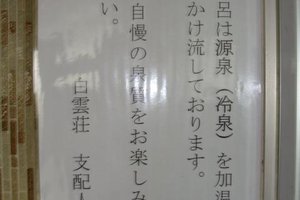 呂は源泉（冷泉）を加温
かけ流しております。
自慢の泉質をお楽しみ
い。
白雲荘　支配人